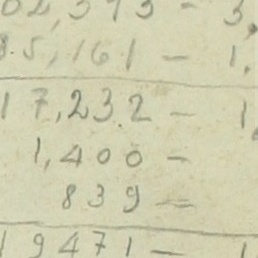 02,393 - 3,
85,161 - 1,
17,232 - 1,
1,400 -
839 -
19471 - 1